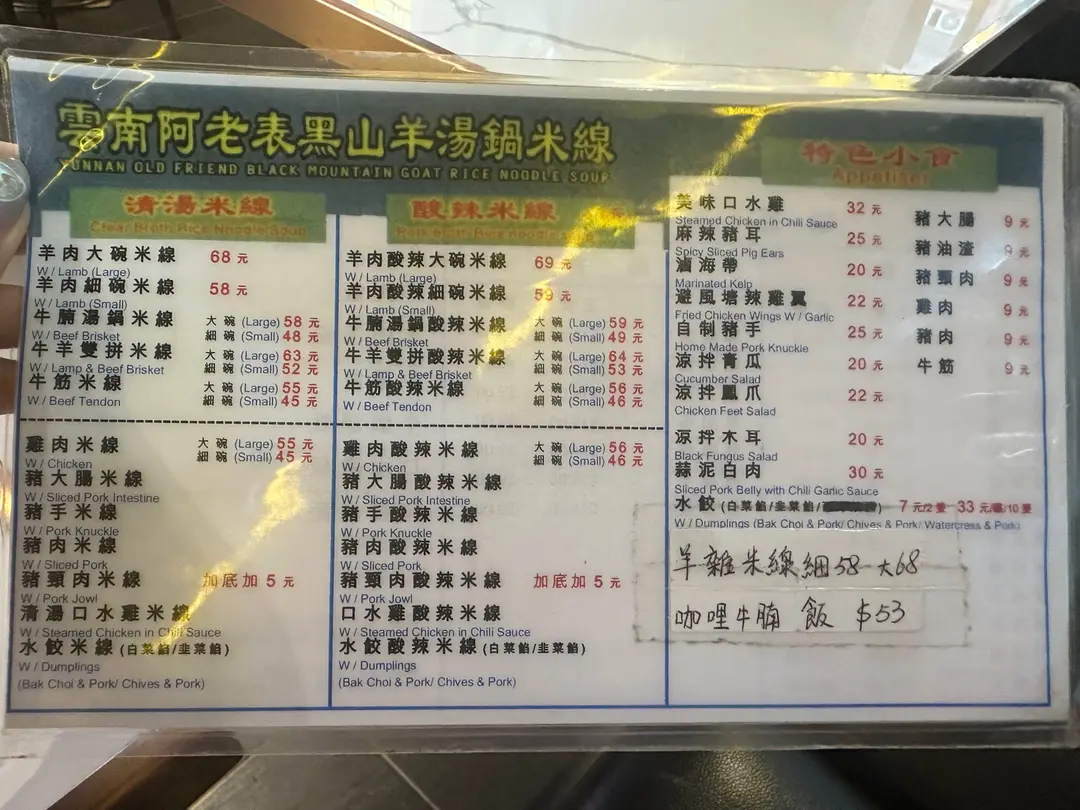 雲南阿老表黑山羊湯鍋米線
YUNNAN OLD FRIEND BLACK MOUNTAIN GOAT RICE NOODLE SOUP
清湯米線
Clear Broth Rice Noodle Soup
羊肉大碗米線 68 元
W / Lamb (Large)
羊肉細碗米線 58 元
W / Lamb (Small)
牛腩湯鍋米線 大 碗 (Large) 58 元
W / Beef Brisket 細 碗 (Small) 48 元
牛羊雙拼米線 大 碗 (Large) 63 元
W / Lamp & Beef Brisket 細 碗 (Small) 52 元
牛筋米線 大 碗 (Large) 55 元
W / Beef Tendon 細 碗 (Small) 45 元
雞肉米線 大 碗 (Large) 55 元
W / Chicken 細 碗 (Small) 45 元
豬大腸米線
W / Sliced Pork Intestine
豬手米線
W / Pork Knuckle
豬肉米線
W / Sliced Pork
豬頸肉米線 加底加 5 元
W / Pork Jowl
清湯口水雞米線
W / Steamed Chicken in Chili Sauce
水餃米線 (白菜餡/韭菜餡)
W / Dumplings
(Bak Choi & Pork/ Chives & Pork)
酸辣米線
羊肉酸辣大碗米線 69 元
W / Lamb (Large)
羊肉酸辣細碗米線 59 元
W / Lamb (Small)
牛腩湯鍋酸辣米線 大 碗 (Large) 59 元
W / Beef Brisket 細 碗 (Small) 49 元
牛羊雙拼酸辣米線 大 碗 (Large) 64 元
W / Lamb & Beef Brisket 細 碗 (Small) 53 元
牛筋酸辣米線 大 碗 (Large) 56 元
W / Beef Tendon 細 碗 (Small) 46 元
雞肉酸辣米線 大 碗 (Large) 56 元
W / Chicken 細 碗 (Small) 46 元
豬大腸酸辣米線
W / Sliced Pork Intestine
豬手酸辣米線
W / Pork Knuckle
豬肉酸辣米線
W / Sliced Pork
豬頸肉酸辣米線 加底加 5 元
W / Pork Jowl
口水雞酸辣米線
W / Steamed Chicken in Chili Sauce
水餃酸辣米線 (白菜餡/韭菜餡)
W / Dumplings
(Bak Choi & Pork/ Chives & Pork)
特色小食
Appetiser
美味口水雞 32 元
Steamed Chicken in Chili Sauce
麻辣豬耳 25 元
Spicy Sliced Pig Ears
滷海帶 20 元
Marinated Kelp
避風塘辣雞翼 22 元
Fried Chicken Wings W / Garlic
自制豬手 25 元
Home Made Pork Knuckle
涼拌青瓜 20 元
Cucumber Salad
涼拌鳳爪 22 元
Chicken Feet Salad
涼拌木耳 20 元
Black Fungus Salad
蒜泥白肉 30 元
Sliced Pork Belly with Chili Garlic Sauce
水餃 (白菜餡/韭菜餡/ ) 7 元/2 隻 33 元/碟/10 隻
W / Dumplings (Bak Choi & Pork/ Chives & Pork/ Watercress & Pork)
豬大腸 9 元
豬油渣 9 元
豬頸肉 9 元
雞肉 9 元
豬肉 9 元
牛筋 9 元
羊雜米線細58 大68
咖哩牛腩 飯 $53